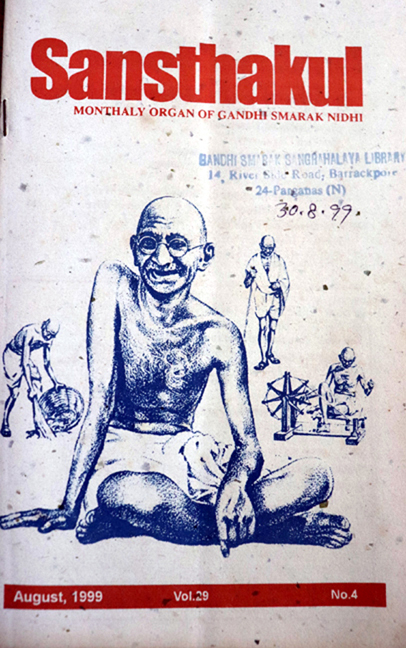 Sansthakul
MONTHALY ORGAN OF GANDHI SMARAK NIDHI
GANDHI SMARAK SANGRAHALAYA LIBRARY
14, River Side Road, Barrackpore
24-Parganas (N)
30.8.99.
August, 1999 Vol.29 No.4